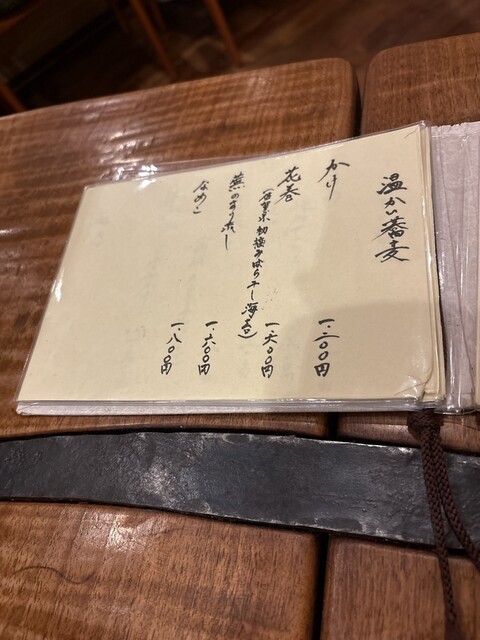 温かい蕎麦
かけ 一、二〇〇円
花巻 一、六〇〇円
(佐賀県初摘みばら干し海苔)
蕪のすりながし 一、六〇〇円
なめこ 一、八〇〇円